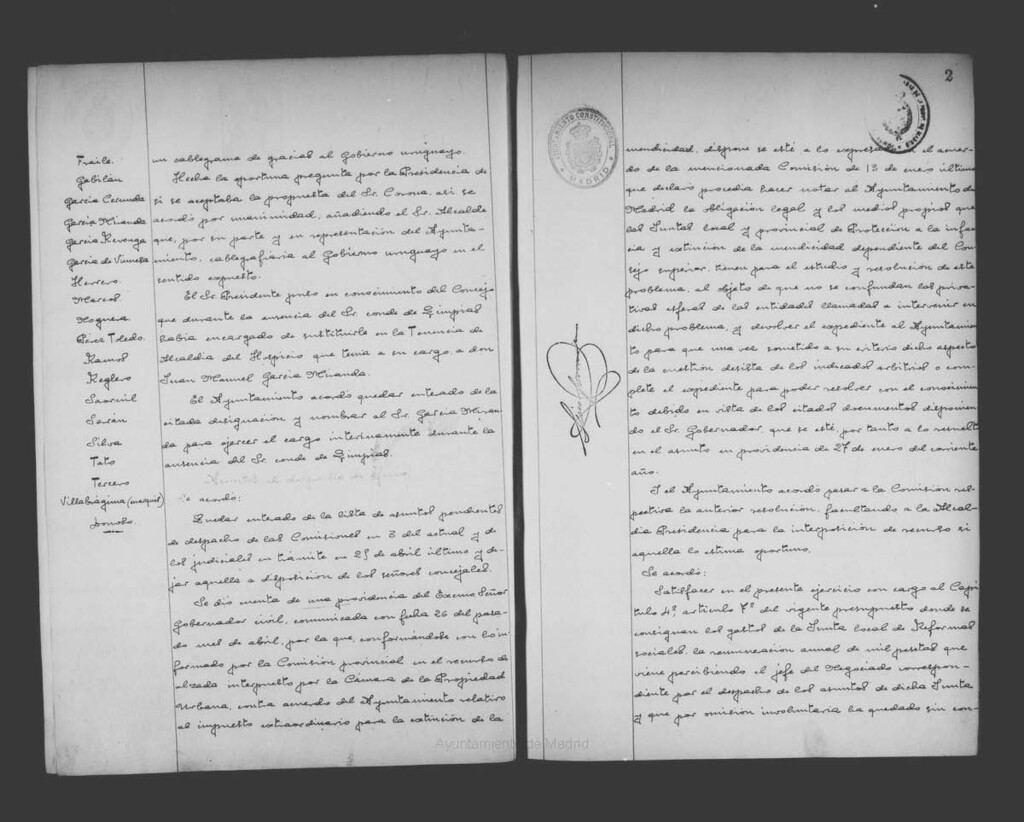 Fraile.
Gabilán
García Cernuda
García Miranda
García Revenga
García de Vinuesa
Herrero.
Marcos.
Noguera
Pérez Toledo.
Ramos
Reglero
Saornil
Serán
Silva
Tato
Tercero
Villabrágima (marqués)
un cablegrama de gracias al Gobierno uruguayo.
Hecha la oportuna pregunta por la Presidencia de
si se aceptaba la propuesta del Sr. Corona, así se
acordó por unanimidad, añadiendo el Sr. Alcalde
que, por su parte y en representación del Ayunta-
miento, cablegrafiaría al Gobierno uruguayo en el
sentido expuesto.
El Sr. Presidente puso en conocimiento del Concejo
que durante la ausencia del Sr. conde de Limpias
había encargado de sustituirle en la Tenencia de
Alcaldía del Hospicio que tenía a su cargo, a don
Juan Manuel García Miranda.
El Ayuntamiento acordó quedar enterado de la
citada designación y nombrar al Sr. García Miran-
da para ejercer el cargo interinamente durante la
ausencia del Sr. conde de Limpias.
Se acordó:
Quedar enterado de la lista de asuntos pendientes
de despacho de las Comisiones en 3 del actual y de
los judiciales en trámite en 25 de abril último y de-
jar aquella a disposición de los señores concejales.
Se dió cuenta de una providencia del Excmo Señor
Gobernador civil, comunicada con fecha 26 del pasa-
do mes de abril, por la que, conformándose con lo in-
formado por la Comisión provincial en el recurso de
alzada interpuesto por la Cámara de la Propiedad
Urbana, contra acuerdo del Ayuntamiento relativo
al impuesto extraordinario para la extinción de la
2
AYUNTAMIENTO CONSTITUCIONAL
MADRID
mendicidad, dispone se esté a lo expresado en el acuer-
do de la mencionada Comisión de 13 de enero último
que declaró procedía hacer notar al Ayuntamiento de
Madrid la obligación legal y los medios propios que
las Juntas local y provincial de Protección a la infan-
cia y extinción de la mendicidad dependiente del Con-
sejo superior, tienen para el estudio y resolución de este
problema, al objeto de que no se confundan las priva-
tivas esferas de las entidades llamadas a intervenir en
dicho problema, y devolver el expediente al Ayuntamien-
to para que una vez sometido a su criterio dicho aspecto
de la cuestión desista de los indicados arbitrios o com-
plete el expediente para poder resolver con el conocimien-
to debido en vista de los citados documentos disponien-
do el Sr. Gobernador, que se esté, por tanto a lo resuelto
en el asunto en providencia de 27 de enero del corriente
año.
Y el Ayuntamiento acordó pasar a la Comisión res-
pectiva la anterior resolución, facultando a la Alcal-
día Presidencia para la interposición de recurso si
aquella lo estima oportuno.
Se acordó:
Satisfacer en el presente ejercicio con cargo al Capí-
tulo 4º, artículo 7º del vigente presupuesto donde se
consignan los gastos de la Junta local de Reformas
sociales, la remuneración anual de mil pesetas que
viene percibiendo el jefe del Negociado correspon-
diente por el despacho de los asuntos de dicha Junta
y que por omisión involuntaria ha quedado sin con-
Ayuntamiento de Madrid